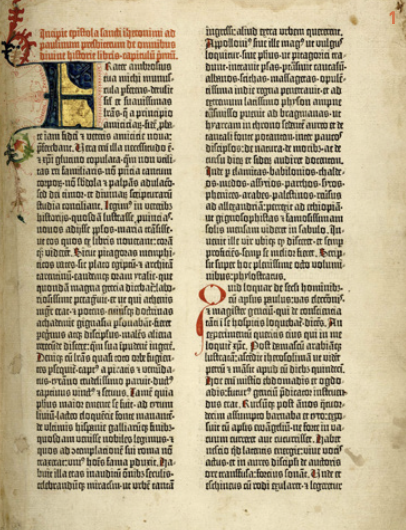 Incipit epistola sancti iheronimi ad
paulinum presbiterum de omnibus
divine historie libris·capitulū pmū.
Frater ambrosius
tua michi munus-
cula pferens·detulit
sil' et suavissimas
lrās·q̄ a principio
amiciciaꝝ·fidē pba-
te iam fidei ⁊ veteris amicicie nova:
pferebant. Vera em̄ illa necessitudo ē·
⁊ xp̄i glutino copulata·qm̄ non vtili-
tas rei familiaris·nō pn̄cia tantum
corpoꝝ·nō sbdola ⁊ palpās adulacō·
sed dei timor·et divinaꝝ scripturaꝝ
studia conciliant. Legim⁹ in veterib⁹
historijs·quosdā lustrasse ,puincias·
novos adijsse pplos·maria trāsisse·
ut eos quos ex libris noverant: corā
q̄ viderēt. Sic pitagoras memphi-
ticos vates·sic plato egiptū ⁊ architā
tarentinū·eandēq; oram ytalie·que
quondā magna grecia dicebat̄:labo-
riosissime peragravit:et ut qui athenis
mgr̄ erat·⁊ potens·cuiusq; doctrinas
achademie gignasia psonabāt·fieret
peginus atq; discipulus·malēs aliena
verecūde discere:q̄m sua īpudent̄ ingerē.
Deniq; cū lrās quasi toto orbe fugien-
tes psequit̄·capt⁹ a piratis ⁊ venūda-
tus·tyrāno crudelissimo paruit·duct⁹
captivus vīct⁹ ⁊ servus. Tamē quia
phūs maior emente se fuit·ad tytum
liviū·lacteo eloquētie fonte manantē·
de ultimis hispanie galliarūq; finib⁹·
quosdam venisse nobiles legimus:⁊
quos ad ꝯtemplacionē sui roma nō
traxerat:uni⁹ hoīs fama pduxit. Ha-
buit illa etas inauditū oīnib⁹ seculis·
celebrandūq; miraclm·ut urbē tantā
ingressi:aliud extra urbem quererent.
Appolloni⁹ sive ille mag⁹ ut vulgus
loquitur·sive phūs·ut pitagorici tra-
dunt·intravit psas·ptrāsivit caucasū·
albanos·scithas·massagetas·opulē-
tissima indie regna penetravit:et ad
extremum latissimo physon amne
trāsmisso puenit ad bragmanas:ut
hyarcam in throno sedentē aureo et de
tantali fonte potantem·inter paucos
discipulos·de natura·de moribz·ac de
cursu dieꝝ et sideꝝ audiret docentem.
Inde p elamitas·babilonios·chalde-
os·medos·assyrios·parthos·syros·
phenices·arabes·palestinos·reversus
ad alexandriā:perrexit ad ethiopiā·
ut gignosophistas ⁊ famosissimam
solis mensam videret in sabulo. In-
venit ille vir ubiq; qd̄ disceret·et semp
proficiēs·semp se melior fieret. Scrip-
sit super hoc plenissime octo volumi-
nibus·phylostratus.
Quid loquar de seculi hominib⁹·
cū apl̄us paulus·vas electionis·
⁊ magister genciū·qui de consciencia
tāti ī se hospitis loquebat̄·dicēs. An
experimentum queritis eius qui in me
loquit̄ xp̄c. Post damascū arabiāq;
lustratā:ascēdit iherosolimā ut vidēt
petrū ⁊ māsit apud eū dieb⁹ quindecī.
Hoc em̄ misterio ebdomadis et ogdo-
adis:futur⁹ genciū pdicator instruen-
dus erat. Rursūq; post ānos quatuor-
decim assumpto barnaba et tyto:expo-
suit cū aplis ewāgeliū:ne forte in va-
cuum curreret aut cucurrisset. Habet
nescio qd̄ latentis energie:vive vocis
actus:et in aures discipli de auctoris
ore transfusa:forcius sonat. Unde et
eschineus cū rodi exularet·⁊ legeretur